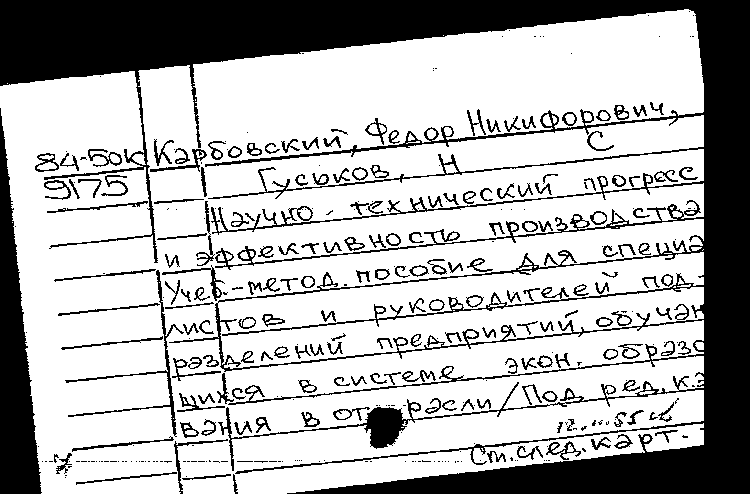 84-50К Карбовский, Федор Никифорович,
9175 Гуськов, Н С
Научно-технический прогресс
и эффективность производства
Учеб-метод. пособие для специа
листов и руководителей под-
разделений предприятий, обучаю
щихся в системе экон. образо
вания в отрасли/Под ред. к.э
Ст. след. карт.